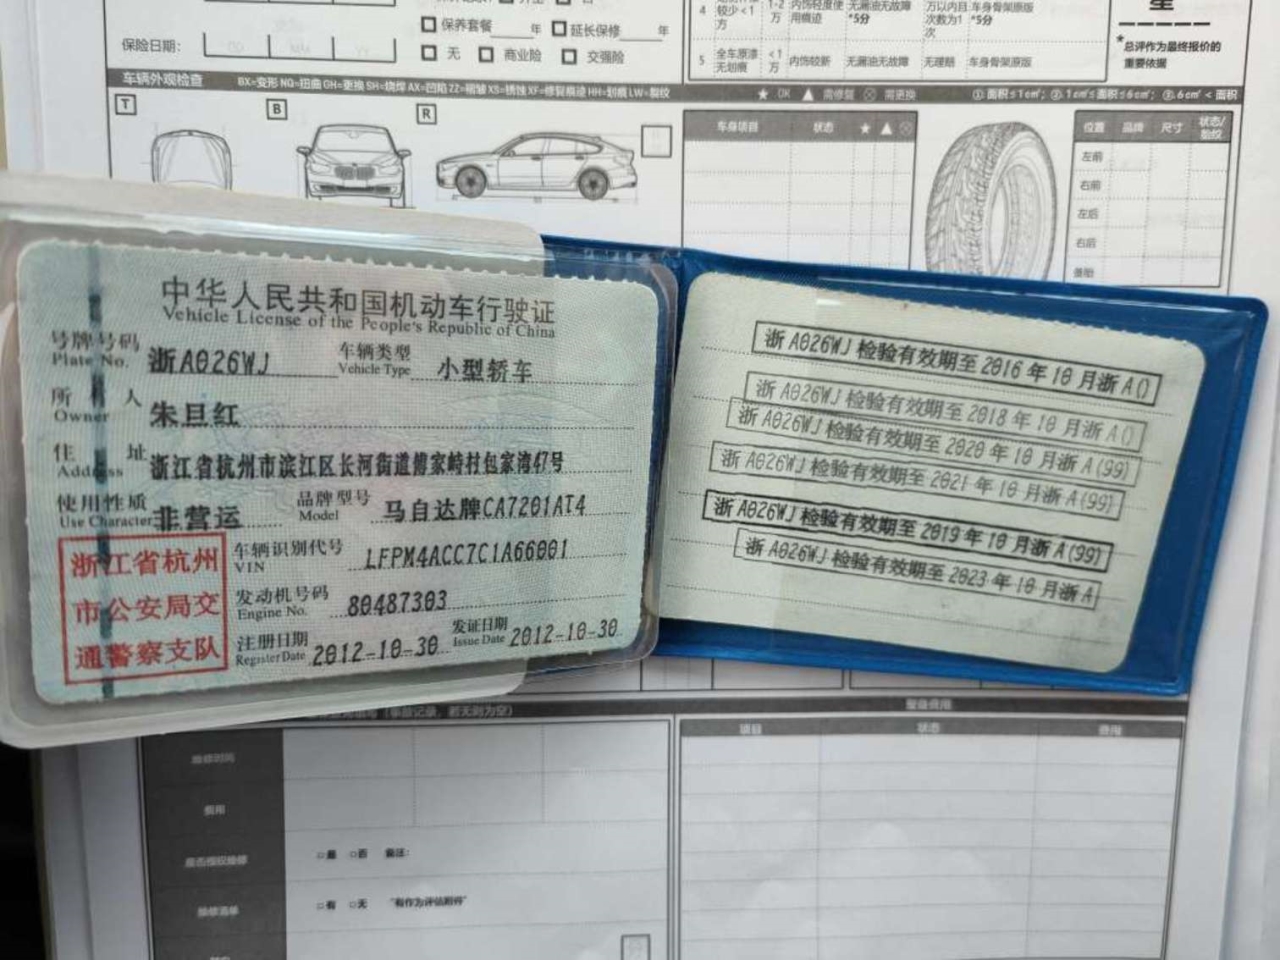 保险日期:
保养套餐 年 延长保修 年
无 商业险 交强险
4 较少<1万 1-2万 内饰轻度使用痕迹 无漏油无故障 *5分 万以内且次数为1次 车身骨架原版 *5分
5 全车原漆无划痕 <1万 内饰较新 无漏油无故障 无理赔 车身骨架原版
星
*总评作为最终报价的重要依据
车辆外观检查 BX=变形 NQ=扭曲 GH=更换 SH=烧焊 AX=凹陷 ZZ=褶皱 XS=锈蚀 XF=修复痕迹 HH=划痕 LW=裂纹
★ OK ▲ 需修复 ⊗ 需更换
①面积≤1cm²; ②1cm²≤面积≤6cm²; ③.6cm²<面积
T B R
车身项目 状态 ★ ▲ ⊗
位置 品牌 尺寸 状态/胎纹
左前
右前
左后
右后
备胎
中华人民共和国机动车行驶证
Vehicle License of the People's Republic of China
号牌号码 浙A026WJ 车辆类型 小型轿车
Plate No. Vehicle Type
所有人 朱旦红
Owner
住址 浙江省杭州市滨江区长河街道傅家峙村包家湾47号
Address
使用性质 非营运 品牌型号 马自达牌CA7201AT4
Use Character Model
浙江省杭州
市公安局交
通警察支队
车辆识别代号 LFPM4ACC7C1A66001
VIN
发动机号码 80487303
Engine No.
注册日期 2012-10-30 发证日期 2012-10-30
Register Date Issue Date
浙A026WJ检验有效期至2016年10月浙A()
浙A026WJ检验有效期至2018年10月浙A()
浙A026WJ检验有效期至2020年10月浙A(99)
浙A026WJ检验有效期至2021年10月浙A(99)
浙A026WJ检验有效期至2019年10月浙A(99)
浙A026WJ检验有效期至2023年10月浙A
整备费用
维修时间
费用
是否授权维修 □是 □否 备注:
维修清单 □有 □无 "有作为评估附件"
项目 状态 费用